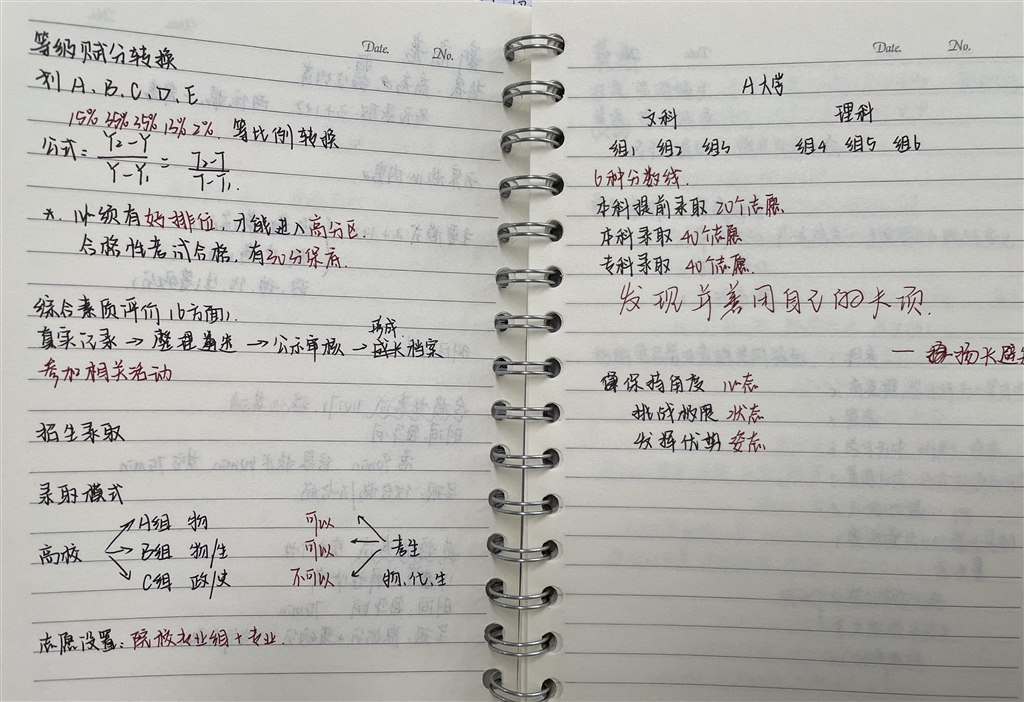 Date. No.
等级赋分转换
划 A、B、C、D、E
15% 35% 35% 13% 2% 等比例转换
公式= Y2-Y / Y-Y1 = T2-T / T-T1.
*. 必须有好排位,才能进入高分区.
合格性考试合格,有30分保底.
综合素质评价(6方面).
形成
真实记录→整理遴选→公示审核→成长档案
参加相关活动
招生录取
录取模式
高校
A组 物 可以
B组 物/生 可以
C组 政/史 不可以
考生
物、化、生
志愿设置:院校专业组+专业.
Date. No.
A大学
文科 理科
组1 组2 组3 组4 组5 组6
6种分数线.
本科提前录取 20个志愿
本科录取 40个志愿
专科录取 40个志愿.
发现并善用自己的长项.
— 扬长避
保持角度 心态
挑战极限 状态
发挥优势 姿态